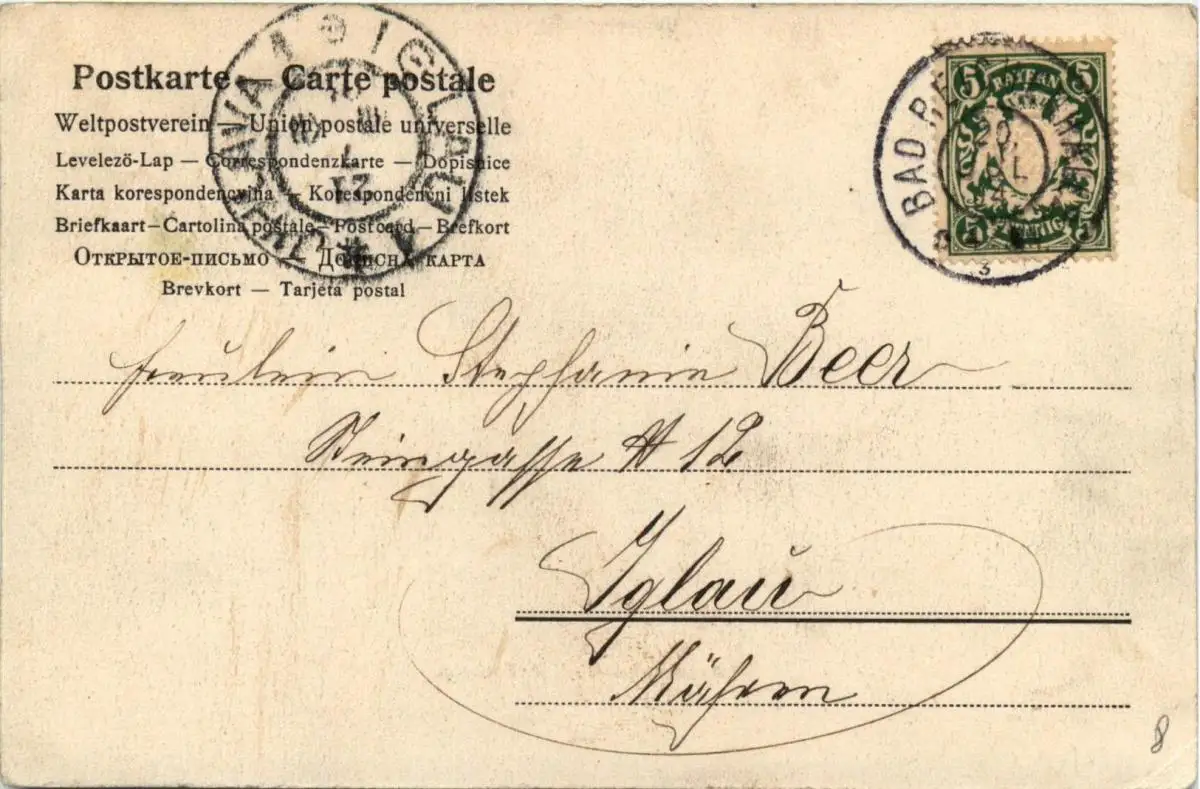 Postkarte — Carte postale
Weltpostverein — Union postale universelle
Levelező-Lap — Correspondenzkarte — Dopisnice
Karta korespondencyjna — Korespondenčni listek
Briefkaart — Cartolina postale — Postcard — Brefkort
Открытое-письмо — Дописна карта
Brevkort — Tarjeta postal
IGLAU 1 * JIHLAVA 1
21
7
BAD REICHENHALL
20.
JUL
3
5 BAYERN 5
5 PFENNIG 5
Fräulein Stephanie Beer
Steingasse # 12
Iglau
Mähren
8